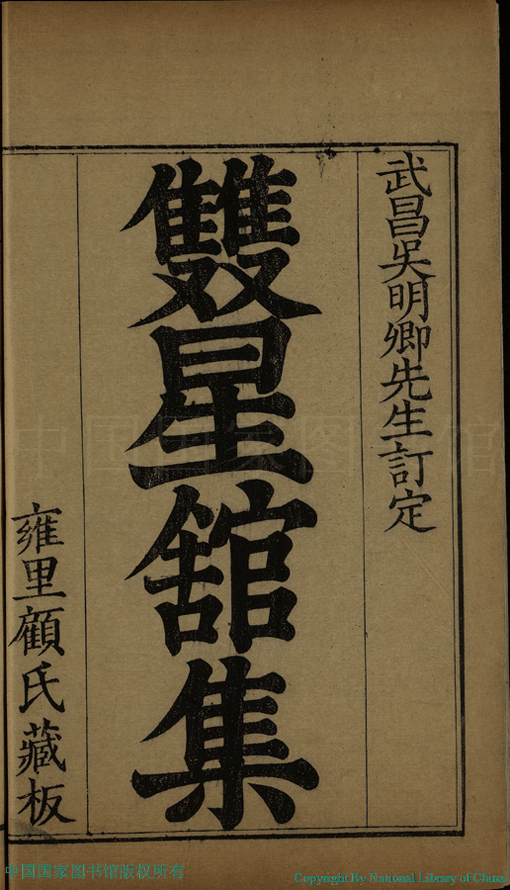 武昌吳明卿先生訂定
雙星舘集
雍里顧氏藏板
中国国家图书馆
中国国家图书馆版权所有
Copyright by National Library of China